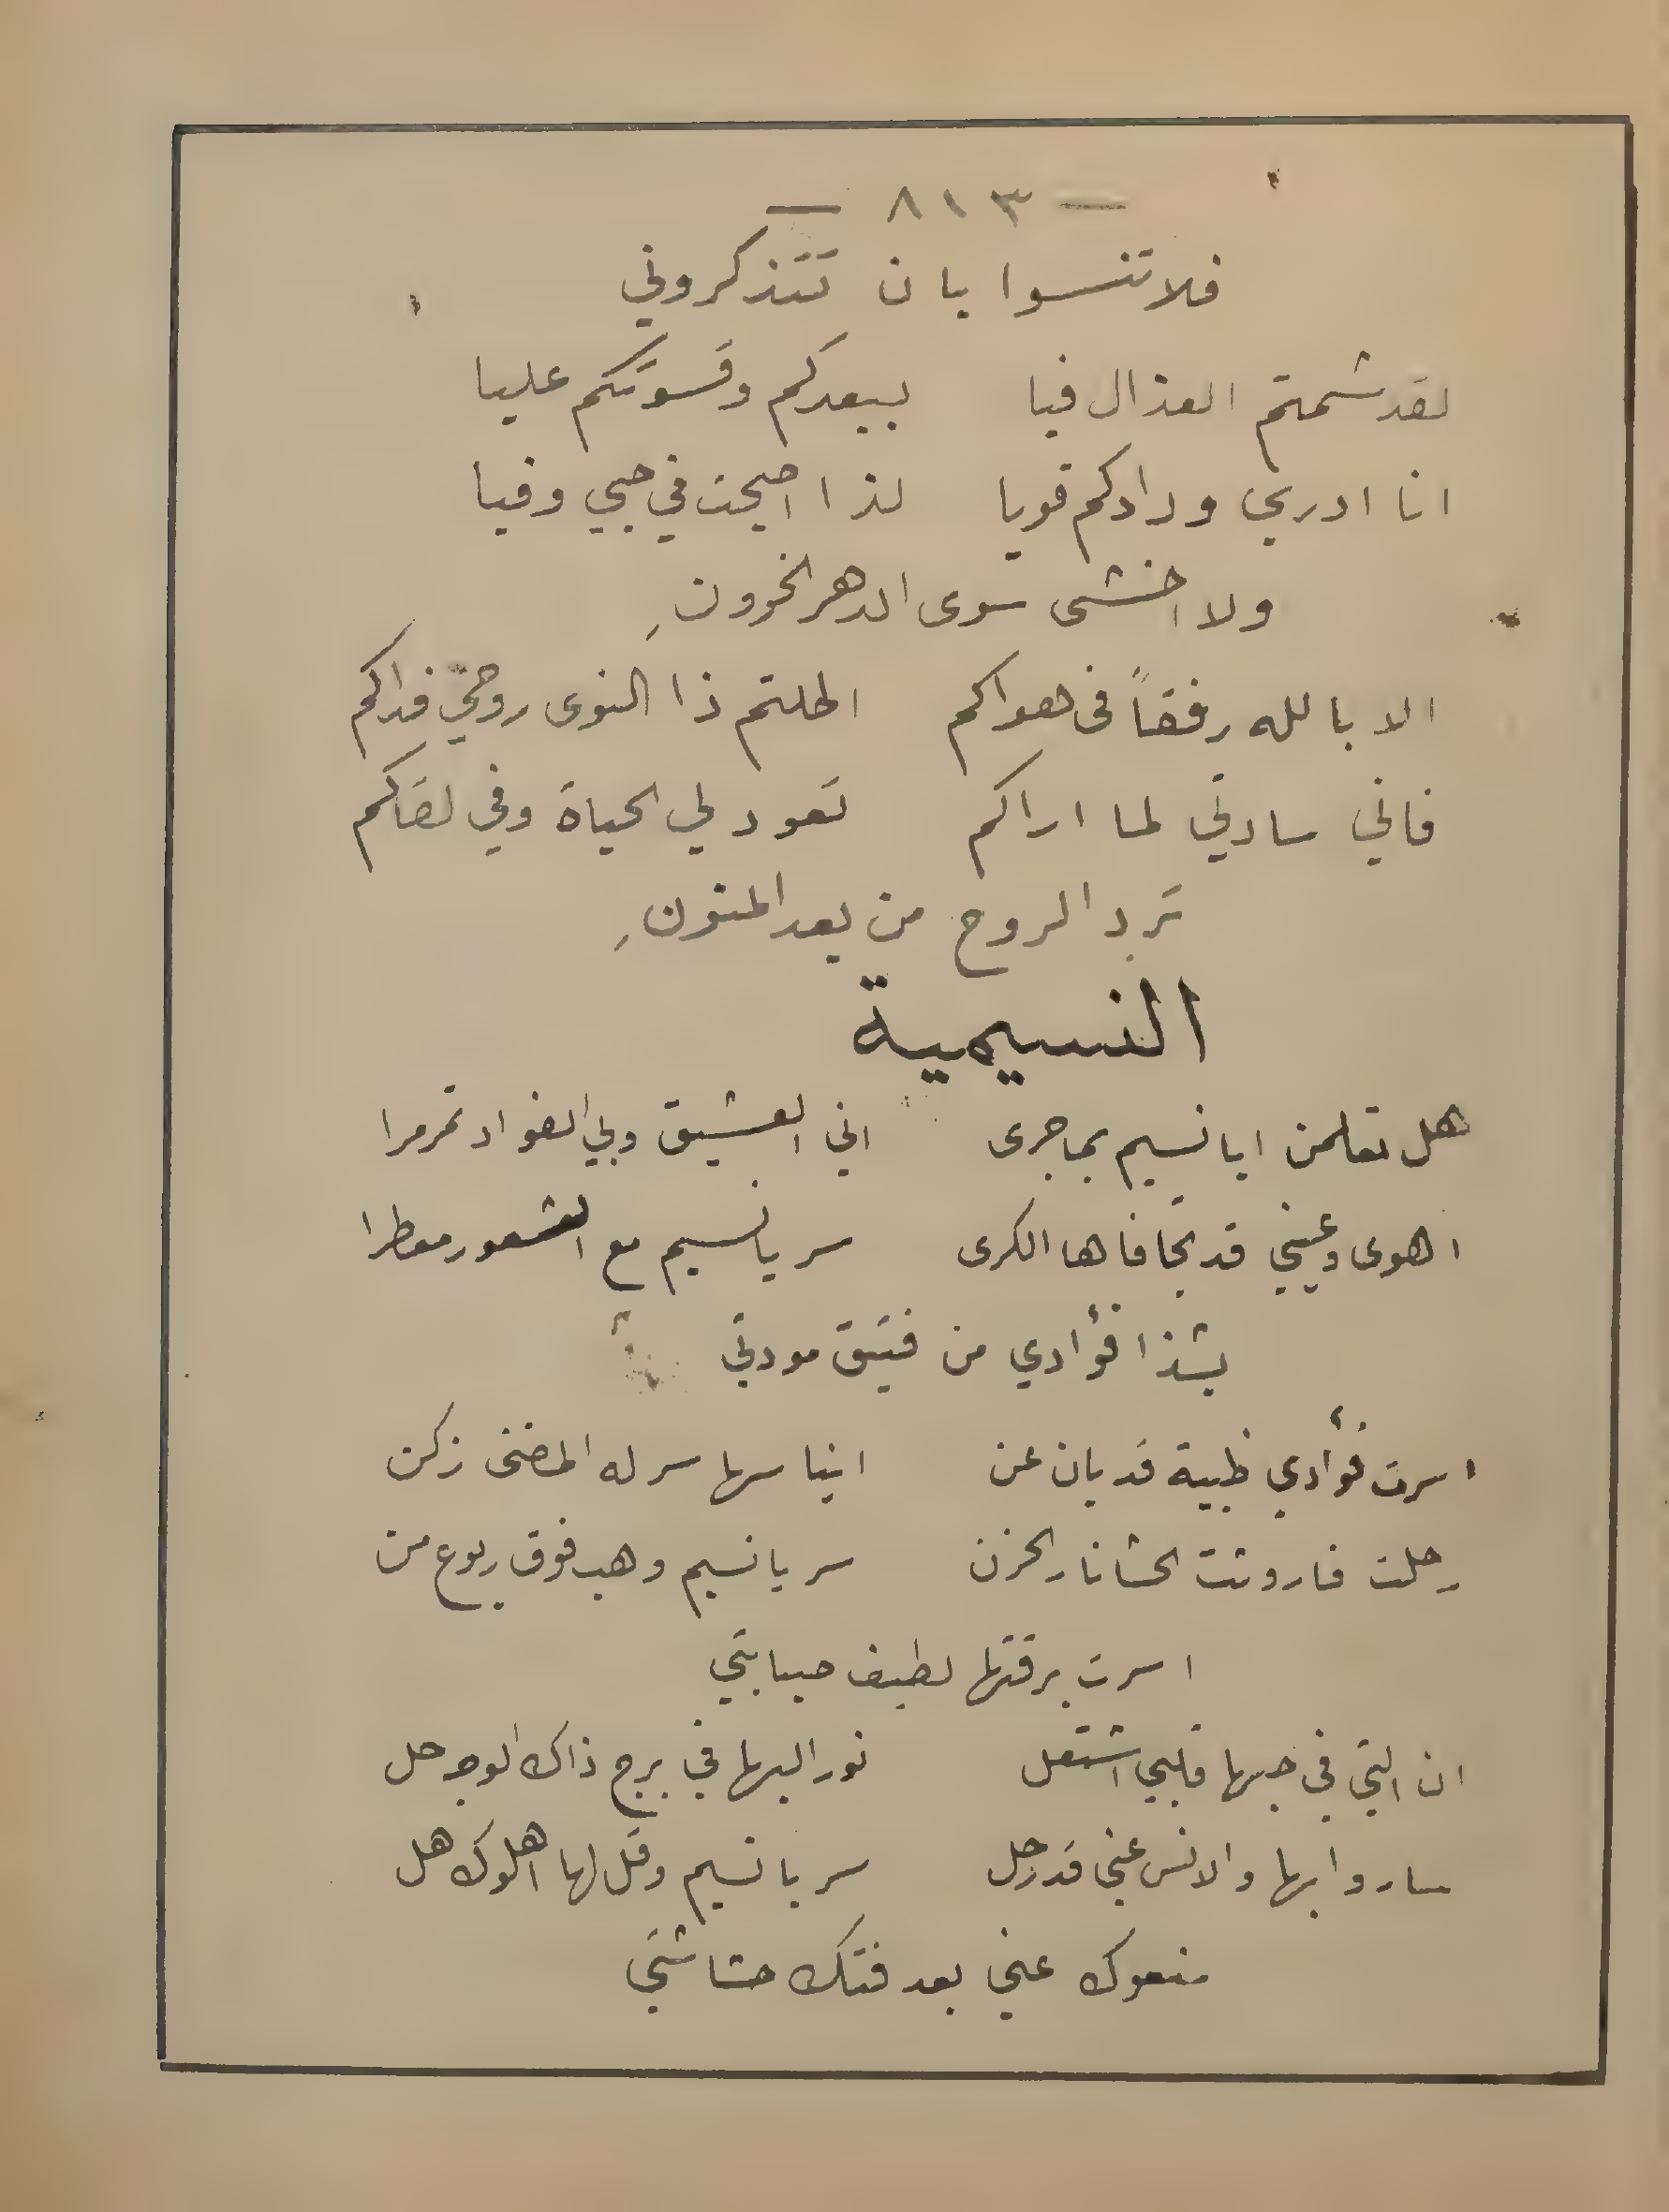 — ٨١٣ —
فلا تنسوا بان تتذكروني
لقد شمتم العذال فيا ببعدكم وقسوتكم عليا
انا ادري ودادكم قويا لذا اصبحت في حبي وفيا
ولا اخشى سوى الدهر الخوونِ
الا بالله رفقاً فى هواكم اطلتم ذا النوى روحي فداكم
فاني سادتي لما اراكم تعود لي الحياة وفي لقاكم
ترد الروح من بعد المنونِ
النسيمية
هل تعلمن ايا نسيم بما جرى اني العشيق وبي الفواد تمرمرا
اهوى وعيني قد تجافاها الكرى سر يا نسيم مع الشعور معطرا
بشذا فؤادي من فتيق مودتي
اسرت فؤادي ظبية قد بان عن ايناسها سر له المضنى زكن
رحلت فاروثت الحشا نار الحزن سر يا نسيم وهب فوق ربوع من
اسرت برقتها لطيف صبابتي
ان التي في حبها قلبي اشتعل نور البها في برج ذاك الوجه حل
ساروا بها والانس عني قد رحل سر يا نسيم وقل لها اهلوك هل
منعوك عني بعد فتك حشاشتي